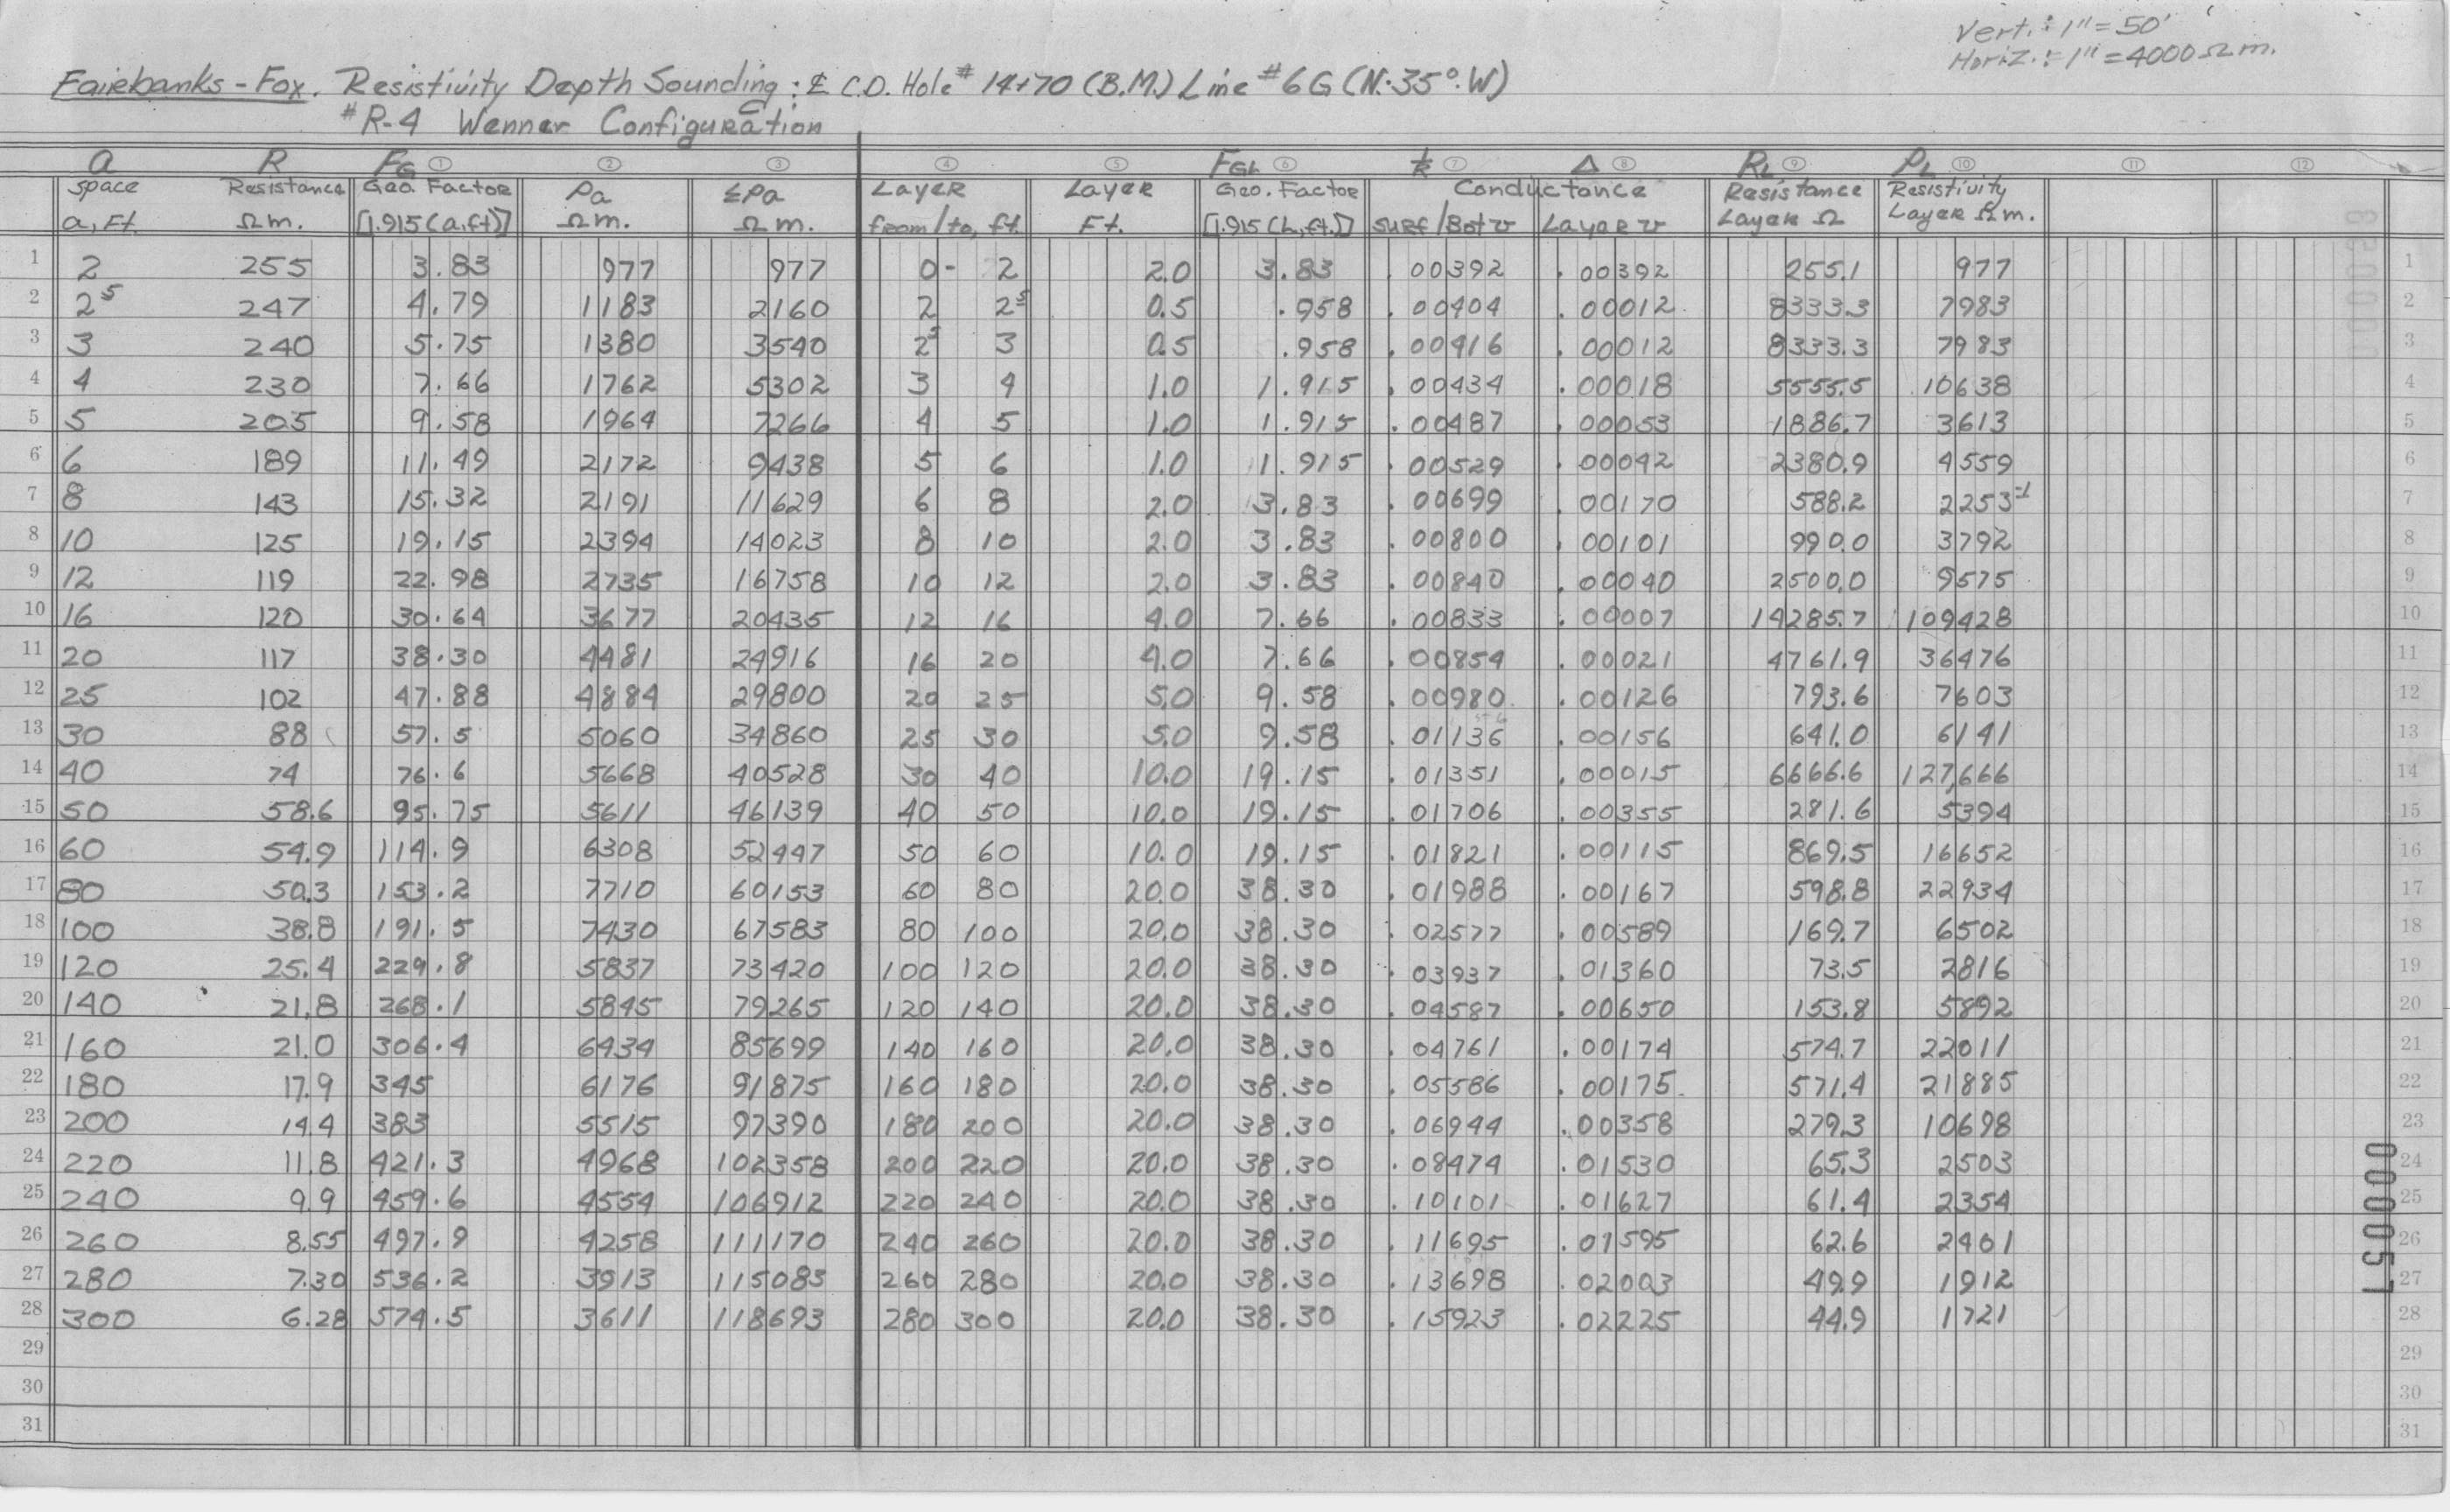 Vert. : 1" = 50'
Horiz. : 1" = 4000 Ω m.
Fairebanks - Fox. Resistivity Depth Sounding : ℄ C.D. Hole # 14+70 (B.M.) Line # 6G (N. 35° W)
#R-4 Wenner Configuration
a R FG ① ② ③ ④ ⑤ FGL ⑥ 1/R ⑦ Δ ⑧ RL ⑨ ρL ⑩ ⑪ ⑫
space Resistance Geo. Factor ρa Σρa Layer Layer Geo. Factor Conductance Resistance Resistivity
a, Ft. Ω m. [1.915 (a, ft)] Ω m. Ω m. from/to, ft. Ft. [1.915 (h, ft.)] surf/Bot ʊ Layer ʊ Layer Ω Layer Ω m.
1 2 255 3.83 977 977 0 - 2 2.0 3.83 .00392 .00392 255.1 977 1
2 2⁵ 247 4.79 1183 2160 2 2⁵ 0.5 .958 .00404 .00012 8333.3 7983 2
3 3 240 5.75 1380 3540 2⁵ 3 0.5 .958 .00416 .00012 8333.3 7983 3
4 4 230 7.66 1762 5302 3 4 1.0 1.915 .00434 .00018 5555.5 10638 4
5 5 205 9.58 1964 7266 4 5 1.0 1.915 .00487 .00053 1886.7 3613 5
6 6 189 11.49 2172 9438 5 6 1.0 1.915 .00529 .00042 2380.9 4559 6
7 8 143 15.32 2191 11629 6 8 2.0 3.83 .00699 .00170 588.2 2253 7
8 10 125 19.15 2394 14023 8 10 2.0 3.83 .00800 .00101 990.0 3792 8
9 12 119 22.98 2735 16758 10 12 2.0 3.83 .00840 .00040 2500.0 9575 9
10 16 120 30.64 3677 20435 12 16 4.0 7.66 .00833 .00007 14285.7 109428 10
11 20 117 38.30 4481 24916 16 20 4.0 7.66 .00854 .00021 4761.9 36476 11
12 25 102 47.88 4884 29800 20 25 5.0 9.58 .00980 .00126 793.6 7603 12
13 30 88 57.5 5060 34860 25 30 5.0 9.58 .01136 .00156 641.0 6141 13
14 40 74 76.6 5668 40528 30 40 10.0 19.15 .01351 .00015 6666.6 127,666 14
15 50 58.6 95.75 5611 46139 40 50 10.0 19.15 .01706 .00355 281.6 5394 15
16 60 54.9 114.9 6308 52447 50 60 10.0 19.15 .01821 .00115 869.5 16652 16
17 80 50.3 153.2 7710 60153 60 80 20.0 38.30 .01988 .00167 598.8 22934 17
18 100 38.8 191.5 7430 67583 80 100 20.0 38.30 .02577 .00589 169.7 6502 18
19 120 25.4 229.8 5837 73420 100 120 20.0 38.30 .03937 .01360 73.5 2816 19
20 140 21.8 268.1 5845 79265 120 140 20.0 38.30 .04587 .00650 153.8 5892 20
21 160 21.0 306.4 6434 85699 140 160 20.0 38.30 .04761 .00174 574.7 22011 21
22 180 17.9 345 6176 91875 160 180 20.0 38.30 .05586 .00175 571.4 21885 22
23 200 14.4 383 5515 97390 180 200 20.0 38.30 .06944 .00358 279.3 10698 23
24 220 11.8 421.3 4968 102358 200 220 20.0 38.30 .08474 .01530 65.3 2503 24
25 240 9.9 459.6 4554 106912 220 240 20.0 38.30 .10101 .01627 61.4 2354 25
26 260 8.55 497.9 4258 111170 240 260 20.0 38.30 .11695 .01595 62.6 2401 26
27 280 7.30 536.2 3913 115083 260 280 20.0 38.30 .13698 .02003 49.9 1912 27
28 300 6.28 574.5 3611 118693 280 300 20.0 38.30 .15923 .02225 44.9 1721 28
29 29
30 30
31 31
000057